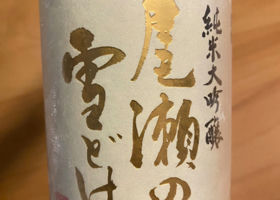 純米大吟醸
尾瀬の
雪どけ